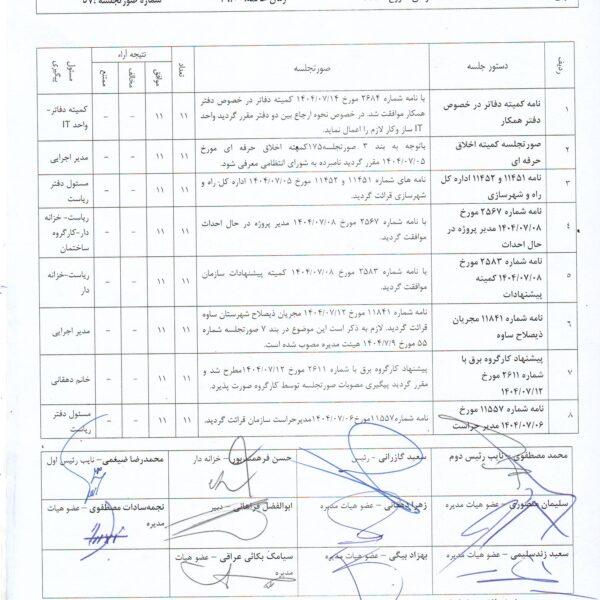 شماره صورتجلسه: ۵۷
ردیف
دستور جلسه
صورتجلسه
تعداد
نتیجه آراء
موافق
مخالف
ممتنع
مسئول
پیگیری
۱
نامه کمیته دفاتر در خصوص
دفتر همکار
با نامه شماره ۲۶۸۴ مورخ ۱۴۰۴/۰۷/۱۴ کمیته دفاتر در خصوص دفتر
همکار موافقت شد. در خصوص نحوه ارجاع بین دو دفتر مقرر گردید واحد
IT ساز وکار لازم را اعمال نماید.
۱۱
۱۱
-
-
کمیته دفاتر-
واحد IT
۲
صورتجلسه کمیته اخلاق
حرفه ای
باتوجه به بند ۳ صورتجلسه۱۷۵کمیته اخلاق حرفه ای مورخ
۱۴۰۴/۰۷/۰۵ مقرر گردید نامبرده به شورای انتظامی معرفی شود.
۱۱
۱۱
-
-
مدیر اجرایی
۳
نامه ۱۱۴۵۱ و ۱۱۴۵۲ اداره کل
راه و شهرسازی
نامه های شماره ۱۱۴۵۱ و ۱۱۴۵۲ مورخ ۱۴۰۴/۰۷/۰۵ اداره کل راه و
شهرسازی قرائت گردید.
۱۱
۱۱
-
-
مسئول دفتر
ریاست
۴
نامه شماره ۲۵۶۷ مورخ
۱۴۰۴/۰۷/۰۸ مدیر پروژه در
حال احداث
با نامه شماره ۲۵۶۷ مورخ ۱۴۰۴/۰۷/۰۸ مدیر پروژه در حال احداث
موافقت گردید.
۱۱
۱۱
-
-
ریاست- خزانه
دار-کارگروه
ساختمان
۵
نامه شماره ۲۵۸۳ مورخ
۱۴۰۴/۰۷/۰۸ کمیته
پیشنهادات
با نامه شماره ۲۵۸۳ مورخ ۱۴۰۴/۰۷/۰۸ کمیته پیشنهادات سازمان
موافقت گردید.
۱۱
۱۱
-
-
ریاست-خزانه
دار
۶
نامه شماره ۱۱۸۴۱ مجریان
ذیصلاح ساوه
نامه شماره ۱۱۸۴۱ مورخ ۱۴۰۴/۰۷/۱۲ مجریان ذیصلاح شهرستان ساوه
قرائت گردید. لازم به ذکر است این موضوع در بند ۷ صورتجلسه شماره
۵۵ مورخ ۱۴۰۴/۷/۹ هیئت مدیره مصوب شده است.
۱۱
۱۱
-
-
مدیر اجرایی
۷
پیشنهاد کارگروه برق با
شماره ۲۶۱۱ مورخ
۱۴۰۴/۰۷/۱۲
پیشنهاد کارگروه برق با شماره ۲۶۱۱ مورخ ۱۴۰۴/۰۷/۱۲مطرح شد و
مقرر گردید پیگیری مصوبات صورتجلسه توسط کارگروه صورت پذیرد.
۱۱
۱۱
-
-
خانم دهقانی
۸
نامه شماره ۱۱۵۵۷ مورخ
۱۴۰۴/۰۷/۰۶ مدیر حراست
نامه شماره۱۱۵۵۷مورخ۱۴۰۴/۰۷/۰۶مدیرحراست سازمان قرائت گردید.
۱۱
۱۱
-
-
مسئول دفتر
ریاست
محمد مصطفوی – نایب رئیس دوم
سعید گازرانی – رئیس
حسن فرهمندپور – خزانه دار
محمدرضا ضیغمی – نایب رئیس اول
سلیمان منصوری – عضو هیات مدیره
زهرا دهقانی – عضو هیات مدیره
ابوالفضل فراهانی – دبیر
نجمه‌سادات مصطفوی – عضو هیات
مدیره
سعید زندسلیمی – عضو هیات مدیره
بهزاد بیگی – عضو هیات مدیره
سیامک بکائی عراقی – عضو هیات
مدیره